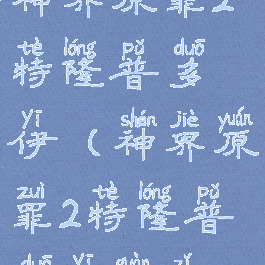 神界原罪2
tè lóng pǔ duō
特隆普多
yī shén jiè yuán
伊(神界原
zuì tè lóng pǔ
罪2特隆普
duō yī guàn zǐ